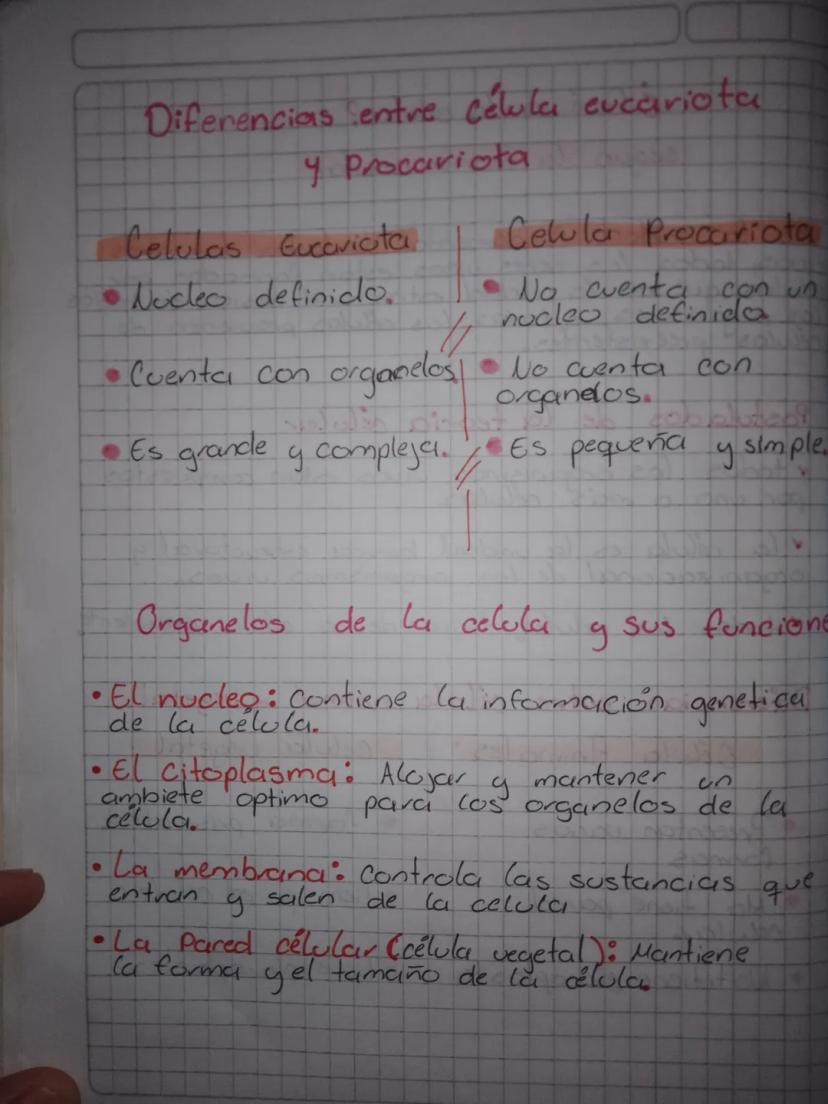 Diferencias entre célula eucariota
y Procariota
Celulas Eucariota
• Nucleo definido.
• Cuenta con organelos
• Es grande y compleja.
Celula Procariota
• No cuenta con un
nucleo definido
• No cuenta con
organelos.
• Es pequeña y simple.
Organelos de la celula y sus funcione
• El nucleo: contiene la información genetica
de la célula.
• El citoplasma: Alojar y mantener un
ambiete optimo para los organelos de la
célula.
• La membrana: controla las sustancias que
entran y salen de la celula
• La Pared célular (célula vegetal): Mantiene
la forma y el tamaño de la célula.